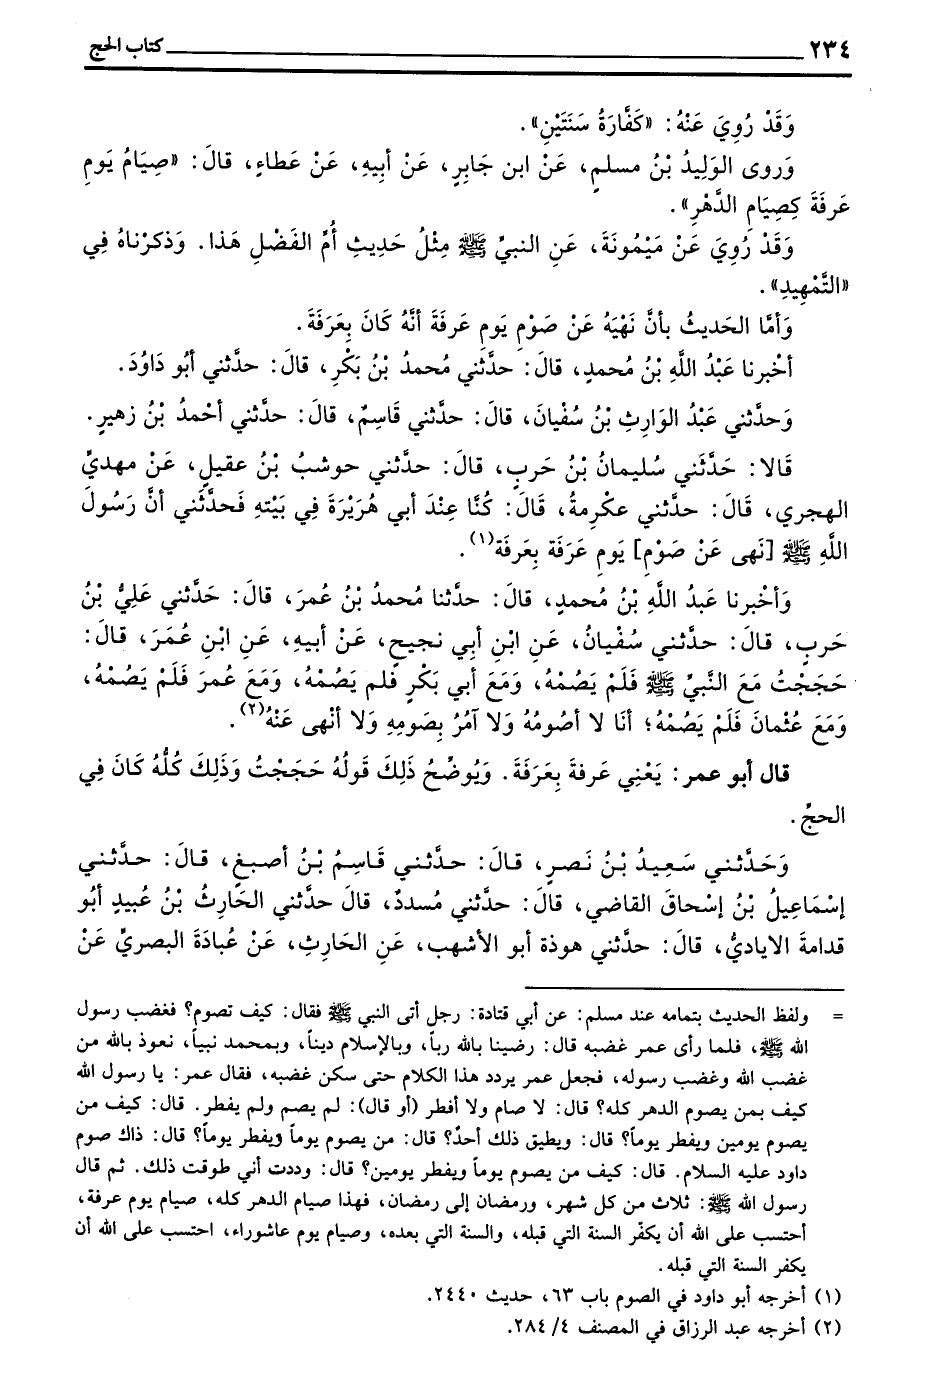 ٢٣٤ كتاب الحج
وَقَدْ رُوِيَ عَنْهُ: «كَفَّارَةُ سَنَتَيْنِ».
وَروى الوَلِيدُ بْنُ مسلمٍ، عَنْ ابن جَابِرٍ، عَنْ أبِيهِ، عَنْ عَطاءٍ، قالَ: «صِيَامُ يَومِ
عَرفَةَ كَصِيَامِ الدَّهْرِ».
وَقَدْ رُوِيَ عَنْ مَيْمُونَةَ، عَنِ النبيِّ ﷺ مِثْلُ حَدِيثِ أُمِّ الفَضْلِ هَذا. وَذكرْناهُ فِي
«التَّمْهِيدِ».
وَأمَّا الحَديثُ بأنَّ نَهْيَهُ عَنْ صَوْمِ يَومِ عَرفَةَ أنَّهُ كَانَ بِعَرَفَةَ.
أخْبرنا عَبْدُ اللَّهِ بْنُ مُحمدٍ، قالَ: حدَّثني مُحمدُ بْنُ بَكْرٍ، قالَ: حدَّثني أبُو دَاوُدَ.
وَحدَّثني عَبْدُ الوَارِثِ بْنُ سُفْيانَ، قالَ: حدَّثني قَاسِمٌ، قالَ: حدَّثني أحْمدُ بْنُ زهيرٍ.
قَالا: حَدَّثَني سُليمانُ بْنُ حَربٍ، قالَ: حدَّثني حوشبُ بْنُ عقيلٍ، عَنْ مهديٍّ
الهجري، قَالَ: حدَّثني عكرمةُ، قَالَ: كُنَّا عِنْدَ أبي هُرَيْرَةَ فِي بَيْتهِ فَحدَّثَني أنَّ رَسُولَ
اللَّهِ ﷺ [نَهى عَنْ صَوْمِ] يَومِ عَرَفَة بِعَرفَة(١).
وَأخْبرنا عَبدُ اللَّهِ بْنُ مُحمدٍ، قالَ: حدَّثنا مُحمدُ بْنُ عُمرَ، قالَ: حَدَّثني عَلِيُّ بْنُ
حَربٍ، قالَ: حدَّثني سُفْيانُ، عَنِ ابْنِ أبِي نجيحٍ، عَنْ أبيه، عَنِ ابْنِ عُمَرَ، قالَ:
حَجَجْتُ مَعَ النَّبيِّ ﷺ فَلَمْ يَصُمْهُ، وَمَعَ أبي بَكْرٍ فلم يَصُمْهُ، وَمَعَ عمرَ فَلَمْ يَصُمْهُ،
وَمَعَ عُثْمانَ فَلَمْ يَصُمْهُ؛ أنَا لا أصُومُهُ وَلا آمُرُ بِصَومِهِ وَلا أنْهى عَنْهُ(٢).
قال أبو عمر: يَعْنِي عَرفةَ بِعَرَفَةَ. وَيُوضِّحُ ذَلِكَ قَولُهُ حَجَجْتُ وَذَلِكَ كُلُّهُ كَانَ فِي
الحجِّ.
وَحَدَّثني سَعِيدُ بْنُ نَصرٍ، قالَ: حدَّثني قَاسِمُ بْنُ أصبغٍ، قالَ: حدَّثني
إسْمَاعِيلُ بْنُ إسْحاقَ القاضي، قالَ: حدَّثني مُسددٌ، قالَ حدَّثني الحَارِثُ بْنُ عُبيدٍ أبُو
قدامةَ الاياديُّ، قالَ: حدَّثني هوذة أبو الأشهب، عَنِ الحَارِثِ، عَنْ عُبادَةَ البصريِّ عَنْ
= ولفظ الحديث بتمامه عند مسلم: عن أبي قتادة: رجل أتى النبي ﷺ فقال: كيف تصوم؟ فغضب رسول
الله ﷺ، فلما رأى عمر غضبه قال: رضينا بالله رباً، وبالإسلام ديناً، وبمحمد نبياً، نعوذ بالله من
غضب الله وغضب رسوله، فجعل عمر يردد هذا الكلام حتى سكن غضبه، فقال عمر: يا رسول الله
كيف بمن يصوم الدهر كله؟ قال: لا صام ولا أفطر (أو قال): لم يصم ولم يفطر. قال: كيف من
يصوم يومين ويفطر يوماً؟ قال: ويطيق ذلك أحدٌ؟ قال: من يصوم يوماً ويفطر يوماً؟ قال: ذاك صوم
داود عليه السلام. قال: كيف من يصوم يوماً ويفطر يومين؟ قال: وددت أني طوقت ذلك. ثم قال
رسول الله ﷺ: ثلاث من كل شهر، ورمضان إلى رمضان، فهذا صيام الدهر كله، صيام يوم عرفة،
أحتسب على الله أن يكفّر السنة التي قبله، والسنة التي بعده، وصيام يوم عاشوراء، احتسب على الله أن
يكفر السنة التي قبله.
(١) أخرجه أبو داود في الصوم باب ٦٣، حديث ٢٤٤٠.
(٢) أخرجه عبد الرزاق في المصنف ٤/ ٢٨٤.